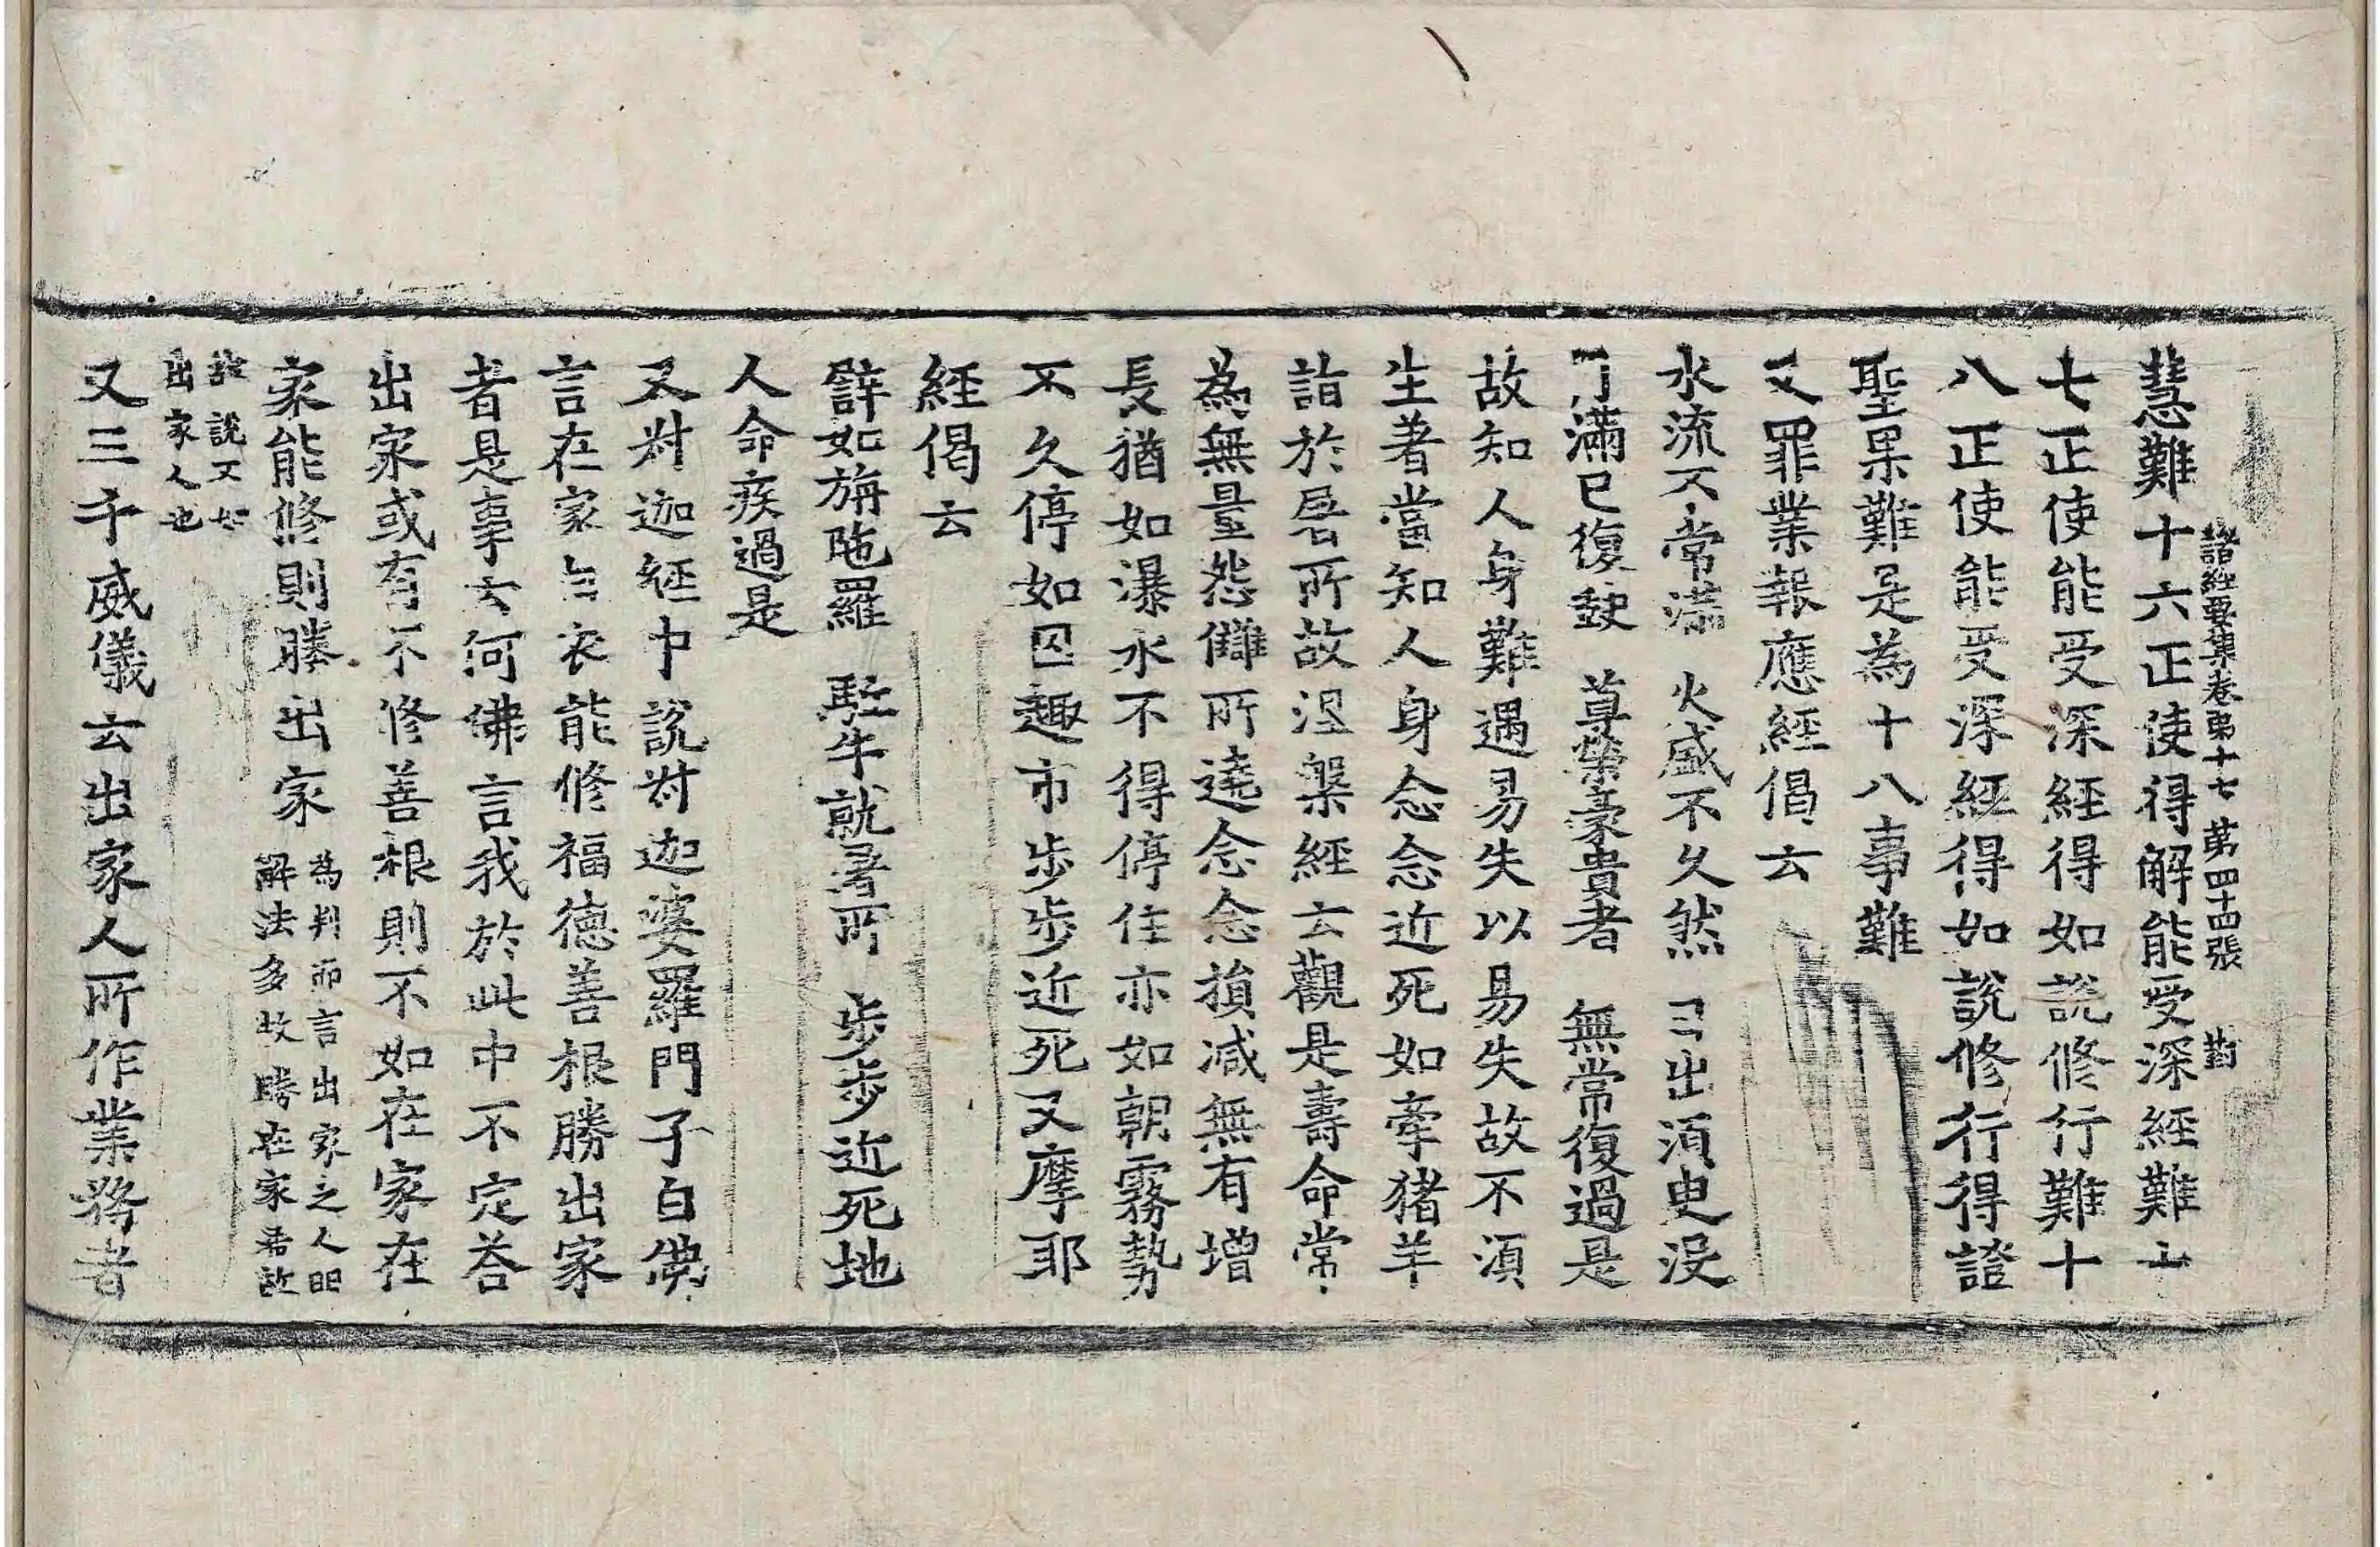 諸經要集卷第十七 第四十四張 對
慧難十六正使得解能受深經難十
七正使能受深經得如說修行難十
八正使能受深經得如說修行得證
聖果難是為十八事難
又罪業報應經偈云
水流不常滿 火盛不久然 日出須臾沒
月滿已復缺 尊榮豪貴者 無常復過是
故知人身難遇易失以易失故不須
生著當知人身念念近死如牽猪羊
詣於屠所故涅槃經云觀是壽命常
為無量怨讎所遶念念損減無有增
長猶如瀑水不得停住亦如朝露勢
不久停如囚趣市步步近死又摩耶
經偈云
譬如旃陁羅 駈牛就屠所 步步近死地
人命疾過是
又對迦經中說對迦婆羅門子白佛
言在家白衣能修福德善根勝出家
者是事云何佛言我於此中不定荅
出家或有不修善根則不如在家在
家能修則勝出家
為判而言出家之人明
解法多故勝在家若故
說又如
出家人也
又三千威儀云出家人所作業務者